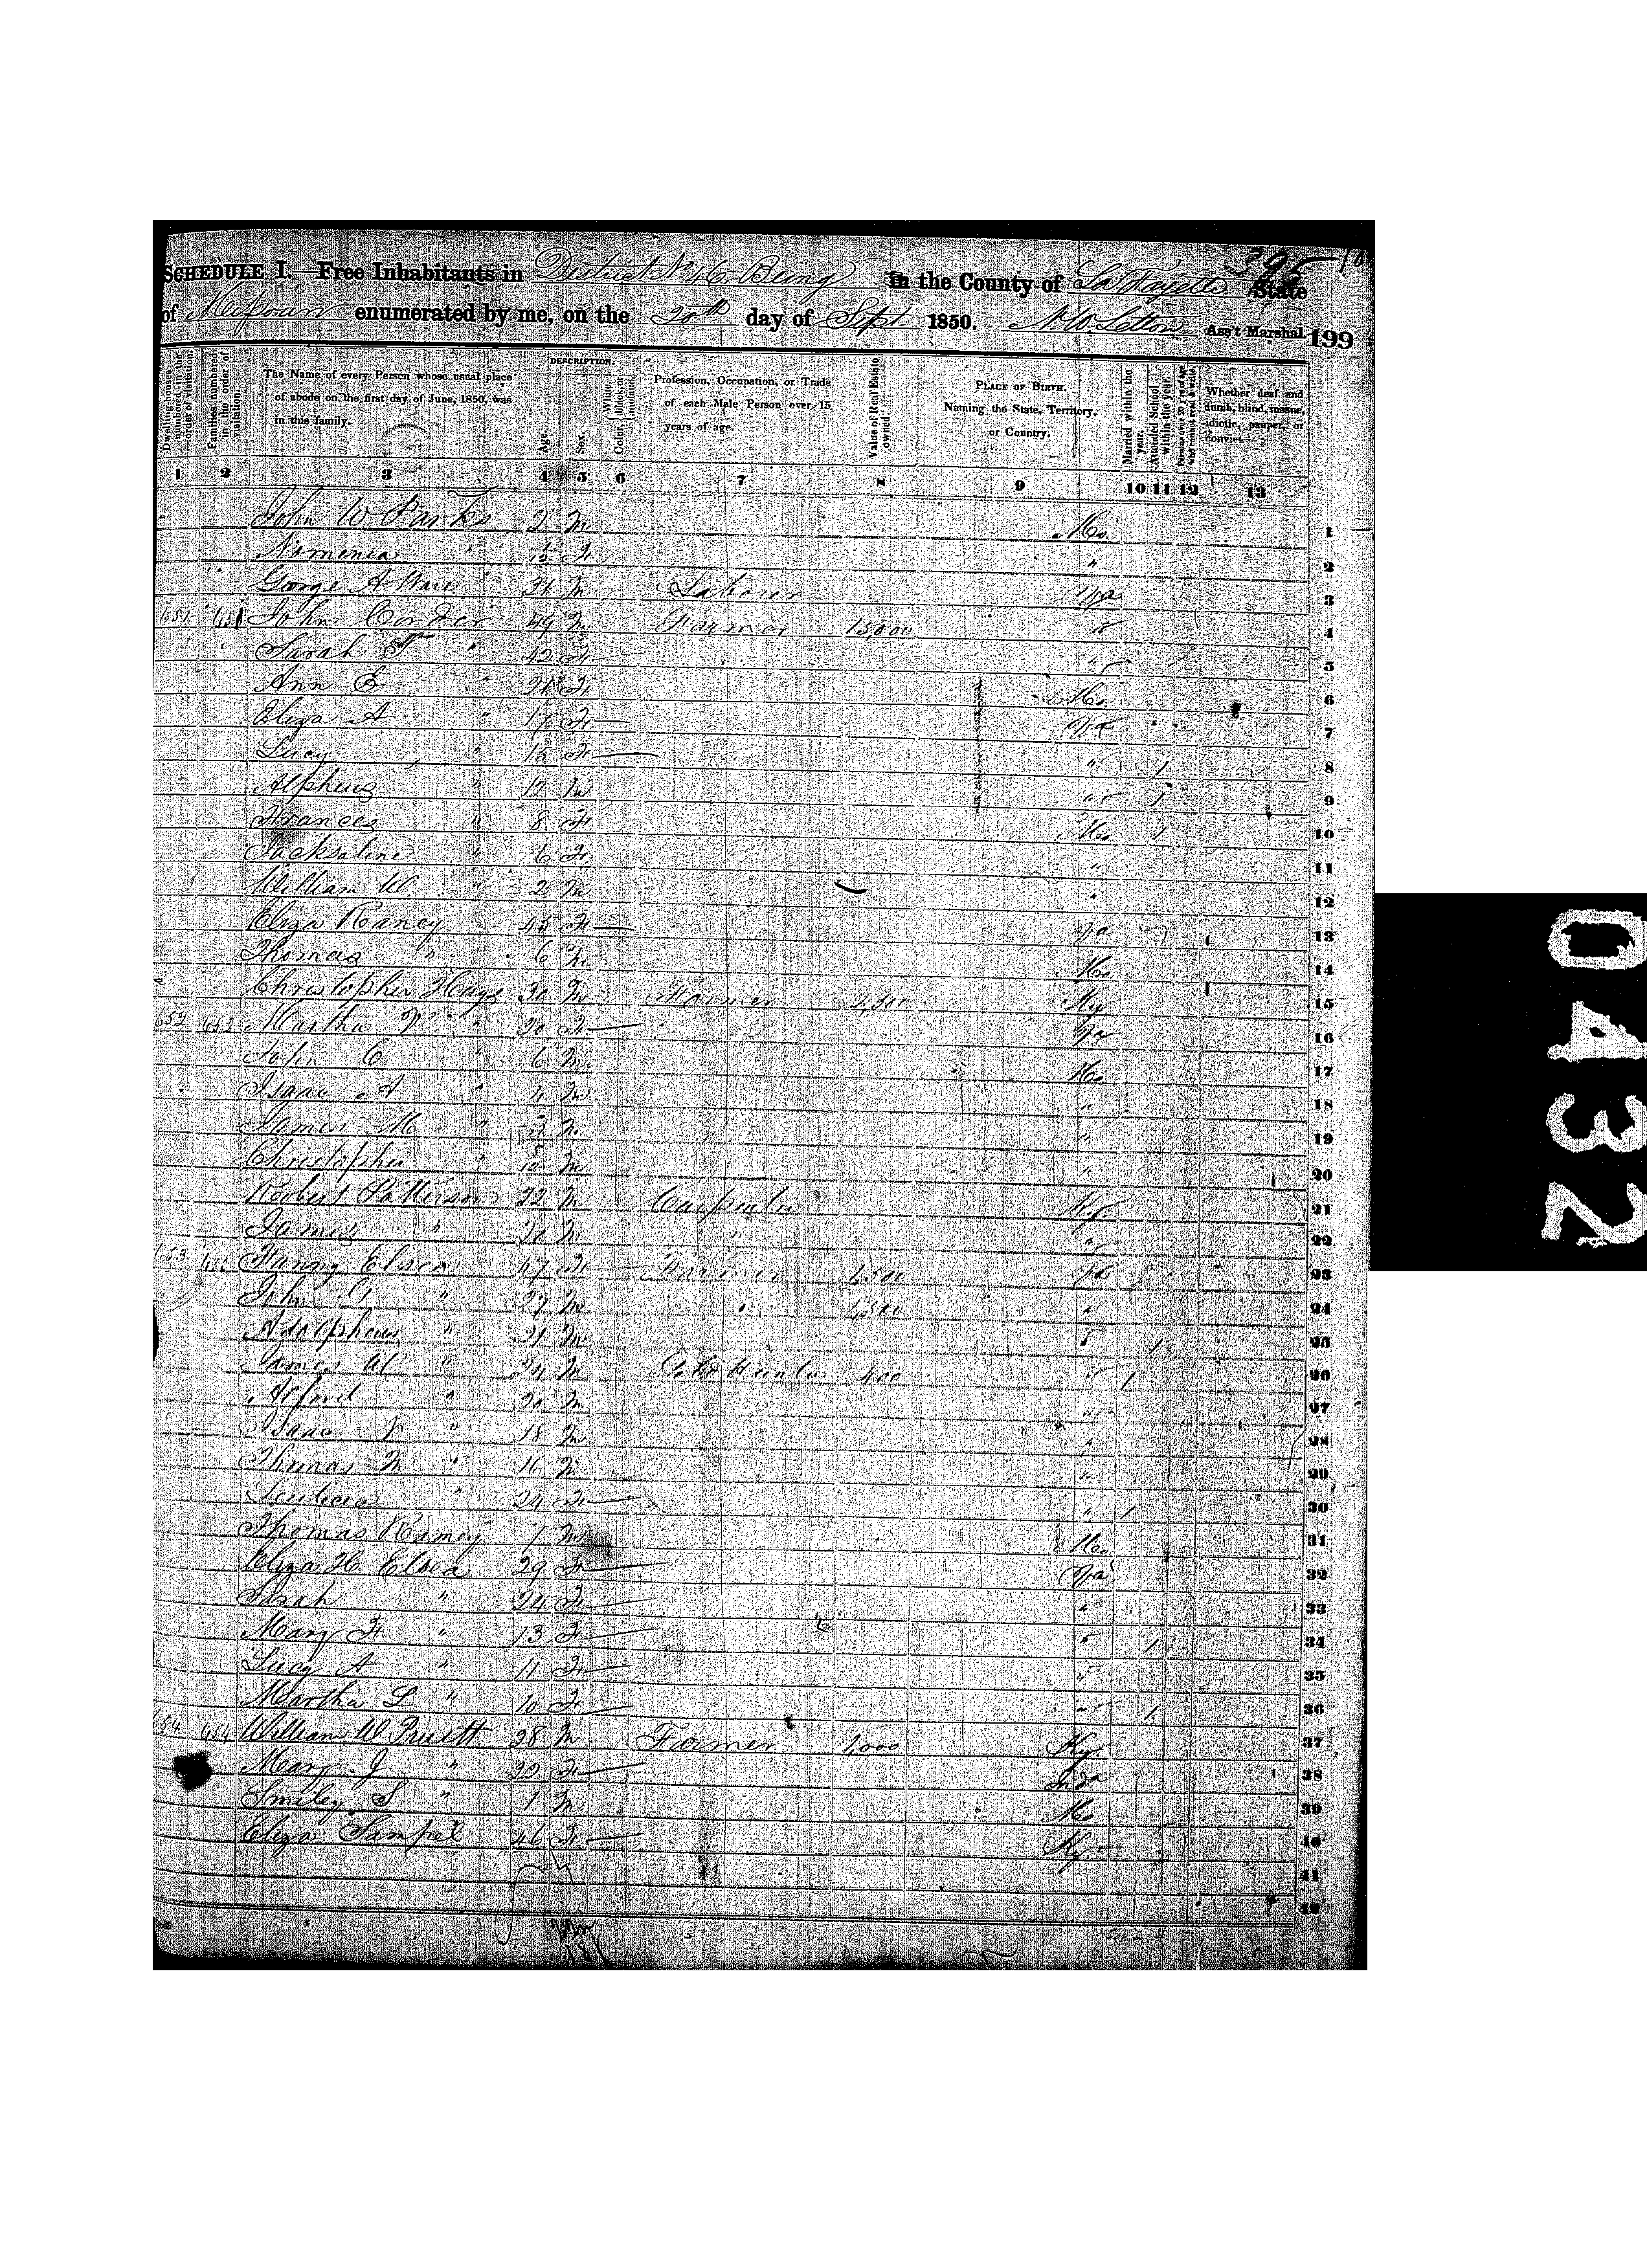 395
SCHEDULE I. Free Inhabitants in District No 46 Being in the County of La Fayette State
of Missouri enumerated by me, on the 20th day of Sept 1850. Ass't Marshal. 199
DESCRIPTION.
Dwelling-houses numbered in the order of visitation.
Families numbered in the order of visitation.
The Name of every Person whose usual place of abode on the first day of June, 1850, was in this family.
Age.
Sex.
Color, White, black, or mulatto.
Profession, Occupation, or Trade of each Male Person over 15 years of age.
Value of Real Estate owned
PLACE OF BIRTH. Naming the State, Territory, or Country.
Married within the year.
Attended School within the year.
Whether deaf and dumb, blind, insane, idiotic, pauper, or convict.
1 2 3 4 5 6 7 8 9 10 11 12 13
John W Parks 2 M Mo. 1
" F " 2
George A Ware 31 M Laborer Va 3
651 651 John Corder 49 M Farmer 15,000 " 4
Sarah " 42 F " 5
Ann E " 21 F Mo. 6
Eliza A " 17 F Va 7
Lucy " 15 F " 1 8
Alpheus " 12 M " 1 9
Frances " 8 F Mo 1 10
Jacksaline " 6 F " 11
William W " 2 M " 12
Eliza Raney 45 F Va 13
Thomas " 6 M Mo 14
Christopher Hays 30 M Farmer Ky 15
652 652 Martha " 20 F Va 16
John C " 6 M Mo 17
Isaac A " 4 M " 18
James M " 3 M " 19
Christopher " M " 20
Robert Patterson 22 M Carpenter 21
James " 20 M " " 22
653 Fanny Elsea F Farmer Va 23
John " 27 M " " 24
Adolpheus " 21 M " 1 25
James W " 24 M 400 " 1 26
Alford " 20 M " 27
Isaac " 18 M " 28
Thomas " 16 M " 29
" 24 F " 1 30
Thomas Ramey 1 M Mo 31
Eliza H Elsea 29 F Va 32
Sarah " 24 F " 33
Mary F " 13 F " 1 34
Lucy A " 11 F " 35
Martha L " 10 F " 1 36
654 654 William W Pruett 28 M Farmer 1,000 Ky. 37
Mary J " 22 F Inda 38
Smiley S " 1 M Mo 39
Eliza 46 F Ky 40
41
42
0432